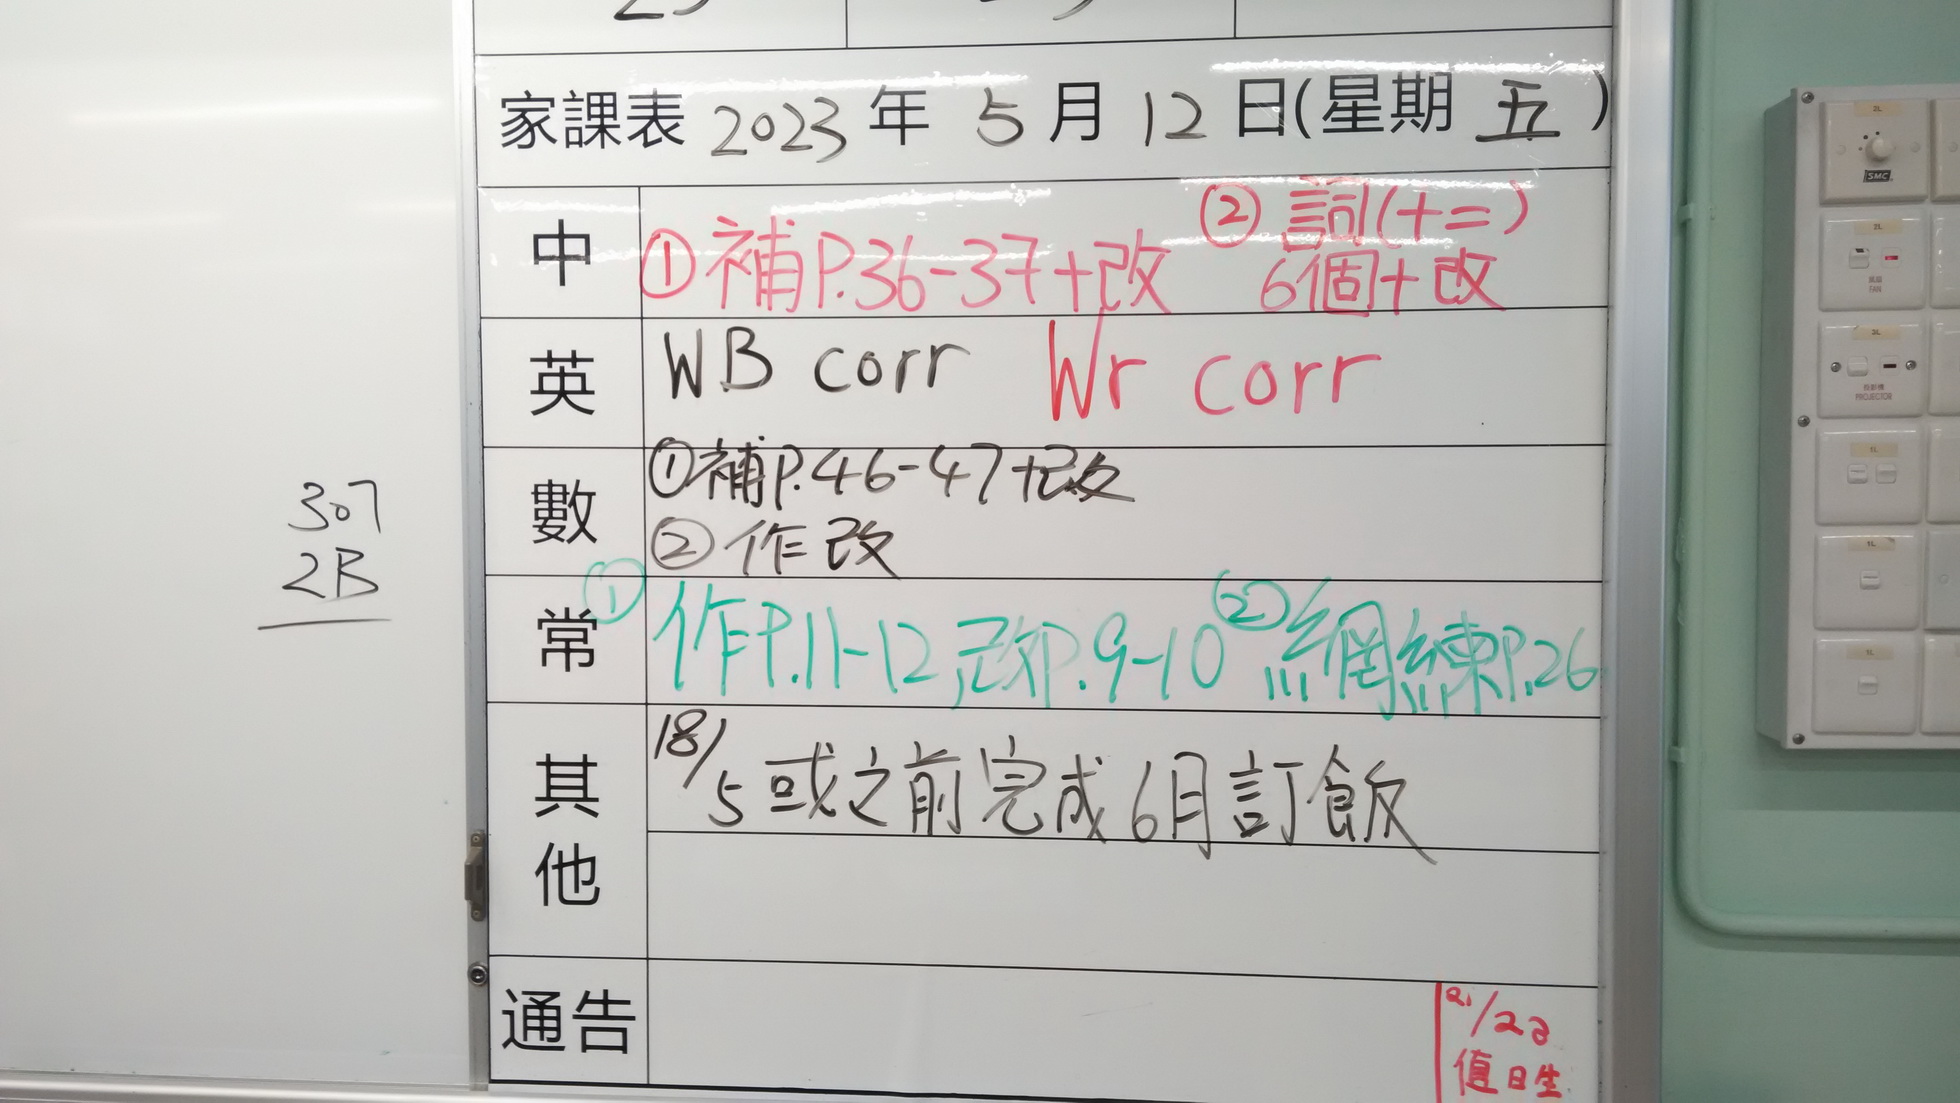 307
2B
家課表 2023 年 5 月 12 日(星期 五)
中
① 補P.36-37+改
② 詞(十二)
6個+改
英
WB corr Wr corr
數
①補P.46-47+改
②作改
常
① 作P.11-12,改P.9-10 ②網練P.26
其他
18/5或之前完成6月訂飯
通告
值日生
2L
SMC
2L
風扇
FAN
2L
投影機
PROJECTOR
1L
1L
1L